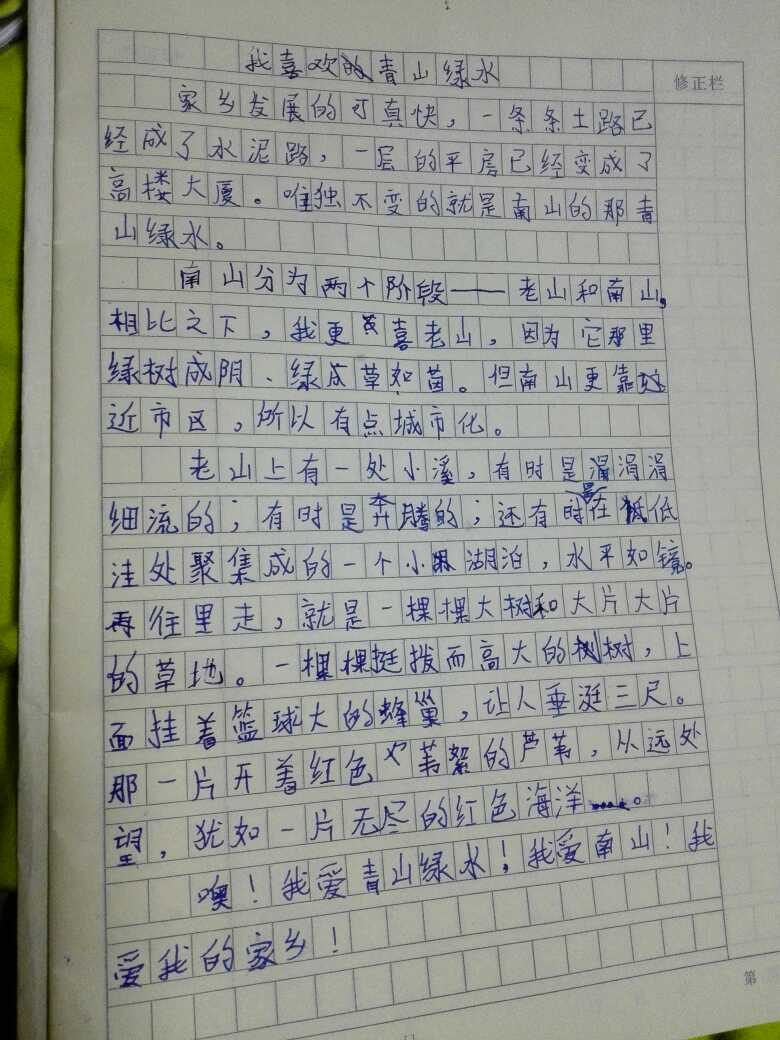 我喜欢的青山绿水
修正栏
家乡发展的可真快，一条条土路已
经成了水泥路，一层的平房已经变成了
高楼大厦。唯独不变的就是南山的那青
山绿水。
南山分为两个阶段——老山和南山，
相比之下，我更喜老山，因为它那里
绿树成阴、绿草如茵。但南山更靠
近市区，所以有点城市化。
老山上有一处小溪，有时是涓涓
细流的；有时是奔腾的；还有时是在低
洼处聚集成的一个小湖泊，水平如镜。
再往里走，就是一棵棵大树和大片大片
的草地。一棵棵挺拨而高大的树，上
面挂着篮球大的蜂巢，让人垂涎三尺。
那一片开着红色苇絮的芦苇，从远处
望，犹如一片无尽的红色海洋。
噢！我爱青山绿水！我爱南山！我
爱我的家乡！
第